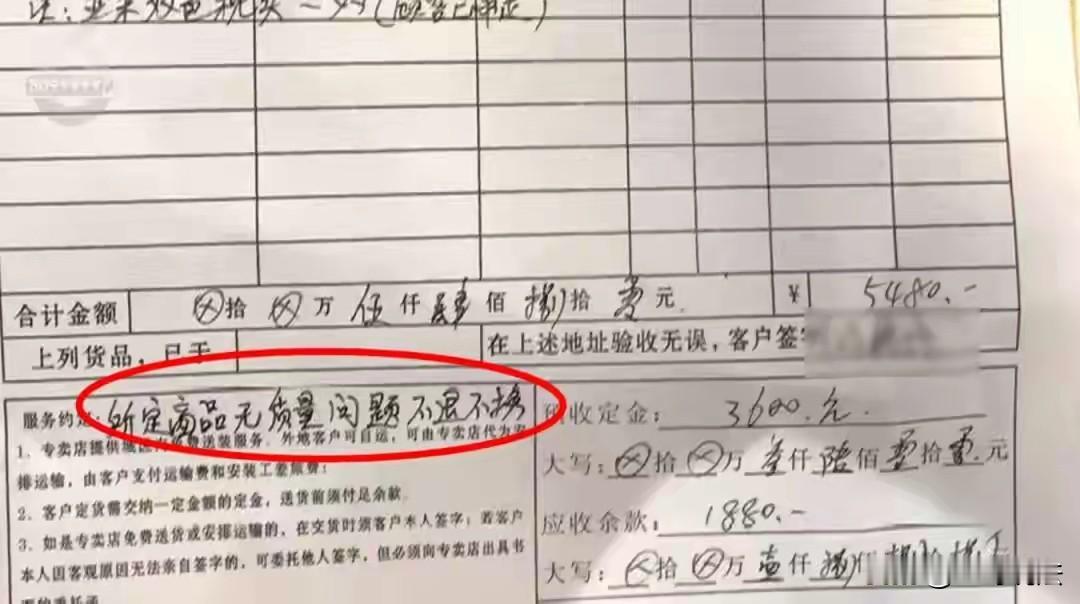 合计金额 ⊗拾 ⊗万 伍仟肆佰捌拾零元 ¥ 5480.-
上列货品，已于 在上述地址验收无误，客户签字
服务约定：所定商品无质量问题不退不换
1、专卖店提供城区内免费送装服务。外地客户可自运，可由专卖店代为安
排运输，由客户支付运输费和安装工差旅费；
2、客户定货需交纳一定金额的定金，送货前须付足余款。
3、如是专卖店免费送货或安排运输的，在交货时须客户本人签字；若客户
本人因客观原因无法亲自签字的，可委托他人签字，但必须向专卖店出具书
面的委托函
预收定金：3600.元.
大写：⊗拾⊗万叁仟陆佰零拾零元
应收余款：1880.-
大写：⊗拾⊗万壹仟捌佰捌拾